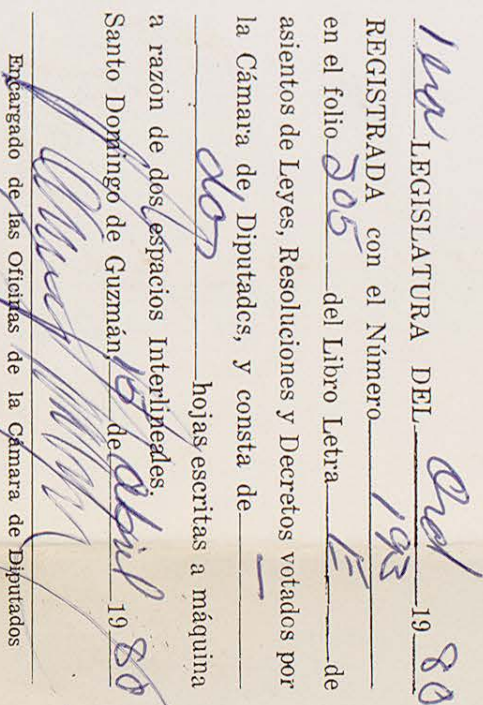 1era LEGISLATURA DEL Ord 1980
REGISTRADA con el Número 193
en el folio 305 del Libro Letra E de
asientos de Leyes, Resoluciones y Decretos votados por
la Cámara de Diputados, y consta de —
dos hojas escritas a máquina
a razón de dos espacios Interlineales.
Santo Domingo de Guzmán, de abril 1980
Encargado de las Oficinas de la Cámara de Diputados